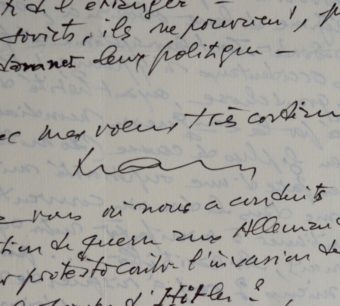 et de l'étranger —
soviets, ils ne pouvaient, p
damner leur politique —
ec mes voeux très cordiau
vous où nous a conduits
tion de guerre aux Allemand
protesto contre l'invasion de
d'Hitler?